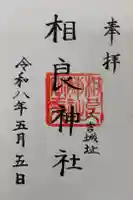 奉拝
相良神社
人吉城址
令和八年五月五日